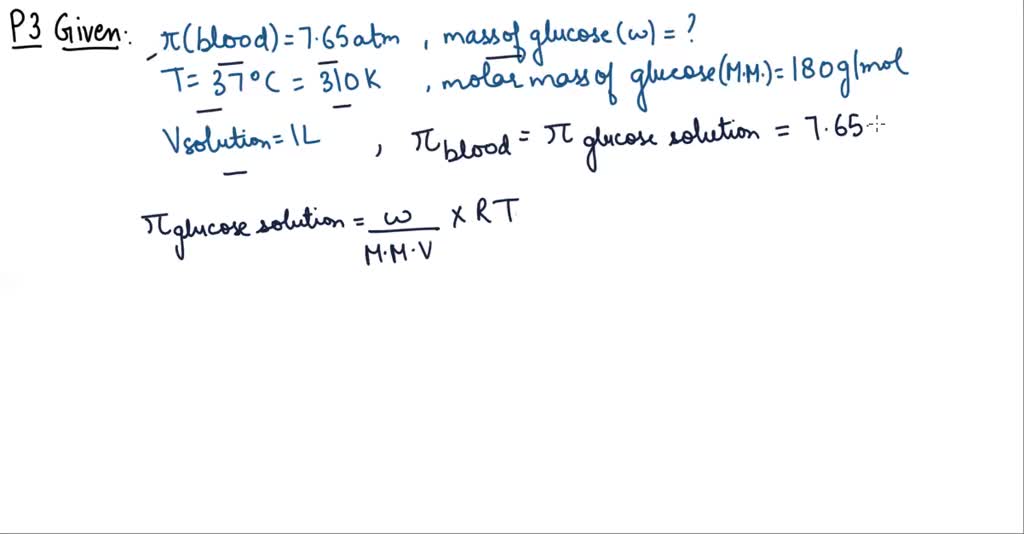 P3 Given: π(blood) = 7.65 atm , mass of glucose (w) = ?
T = 37°C = 310K , molar mass of glucose (M.M.) = 180g/mol
Vsolution = 1L , π blood = π glucose solution = 7.65
π glucose solution = w / M.M.V × RT